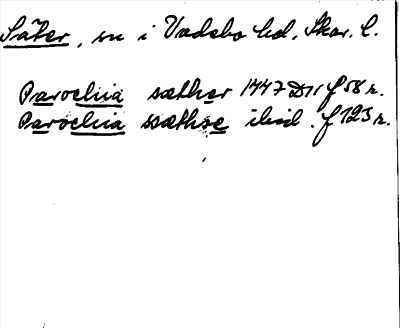 Säter, sn i Vadsbo hd, Skar. l.
Parochia sæther 1447 D11 f 58 r.
Parochia ssæthre ibid. f 123 r.